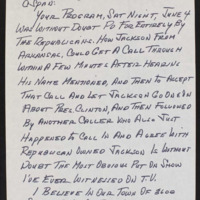 C-Span:
Your Program, Sat Night, June 4
Was Without Doubt Pd For Entirely By
The Republicans. How Jackson From
Arkansas Could Get A Call Through
Within A Few Minutes After Hearing
His Name Mentioned, And Then To Accept
That Call And Let Jackson Go On On
About Pres. Clinton, And Then Followed
By Another Caller Who Also Just
Happened To Call In And Agree With
Republican Owned Jackson Is Without
Doubt The Most Obvious Put On Show
I've Ever Witnessed On T.V.
I Believe In Our Town Of 2100